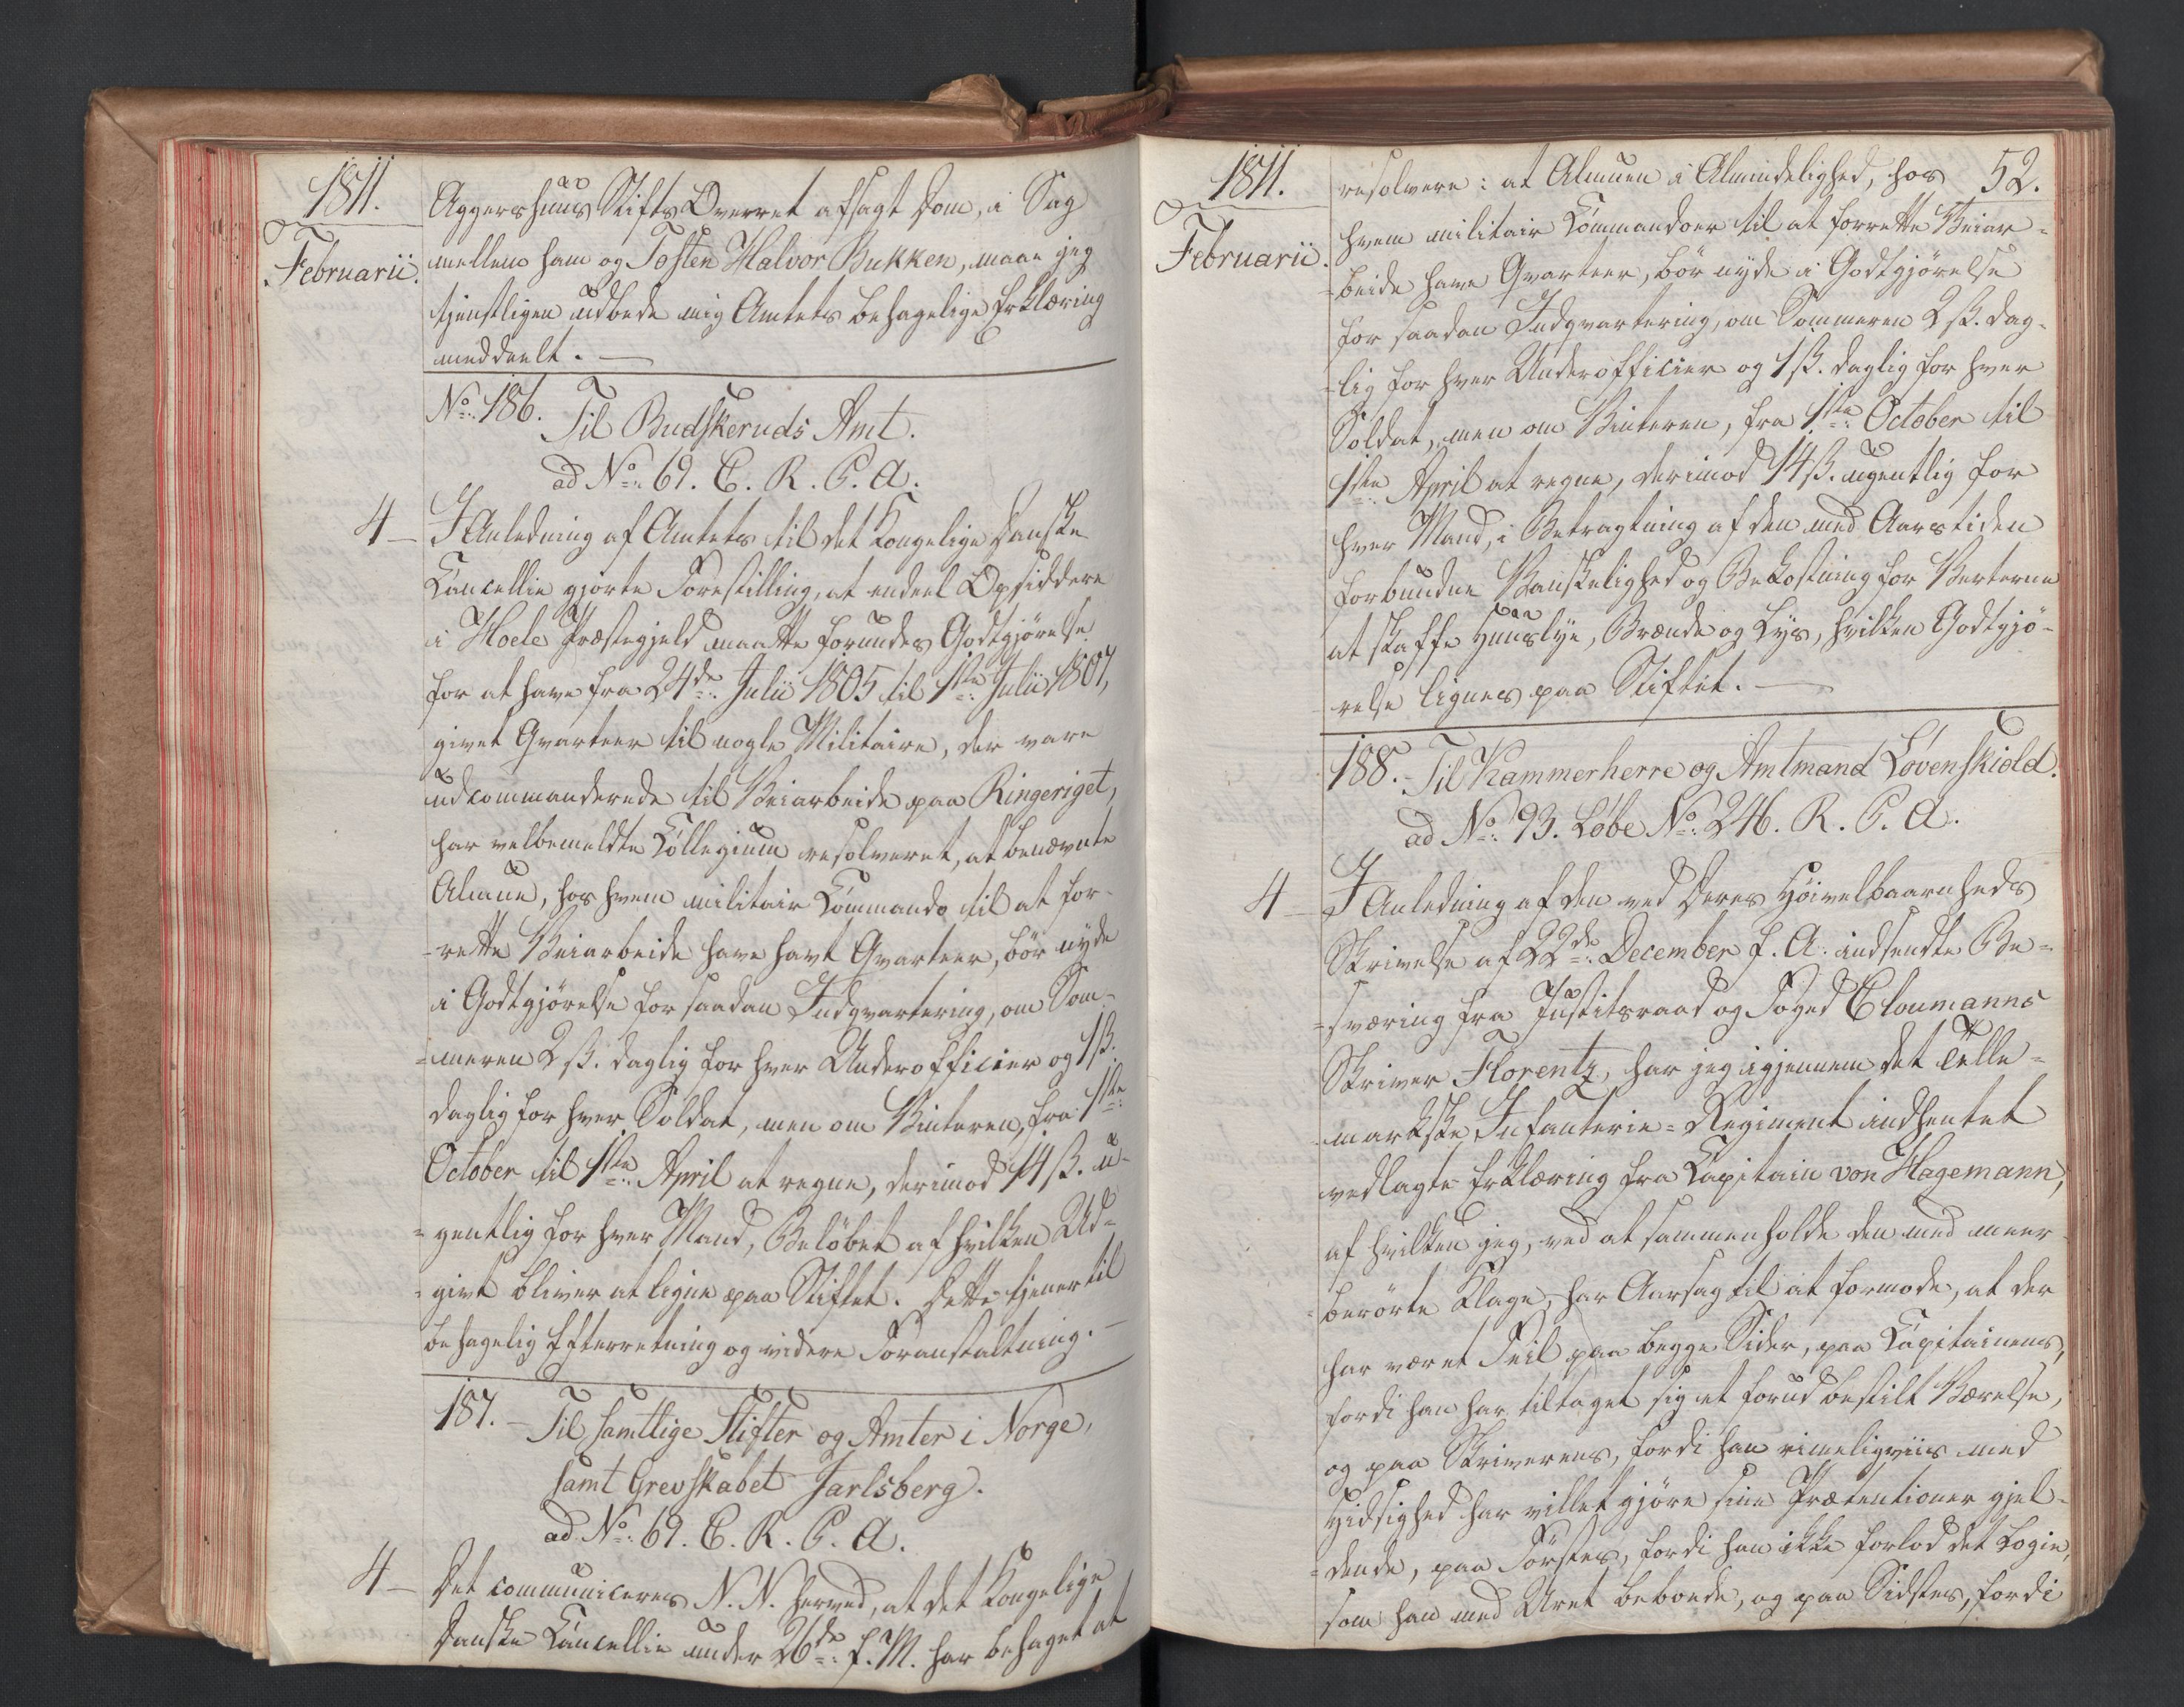 1811.
Februarii.
Aggershuus Stifts Overret afsagt Dom, i Sag
mellem ham og Tosten Halvor Bukken, maae jeg
tjenstligen udbede mig Amtets behagelige Erklæring
meddeelt. —
No. 186. Til Budskeruds Amt.
ad No. 69. C. R. P. A.
4 — I Anledning af Amtets til det Kongelige Danske
Cancellie gjorte Forestilling, at endeel Opsiddere
i Hoele Præstegjeld maatte forundes Godtgjørelse
for at have fra 24de Julii 1805 til 1ste Julii 1807,
givet Qvarteer til nogle Militaire, der vare
udcommanderede til Veiarbeide paa Ringeriget,
har velbemeldte Collegium resolveret, at benævnte
Almue, hos hvem militair Commando til at for-
-rette Veiarbeide have havt Qvarteer, bør nyde
i Godtgjørelse for saadan Indqvartering, om Som-
-meren 2 ß. daglig for hver Underofficier og 1 ß.
daglig for hver Soldat, men om Vinteren, fra 1ste
October til 1ste April at regne, derimod 14 ß. u-
=gentlig for hver Mand, Beløbet af hvilken Ud=
=givt bliver at ligne paa Stiftet. Dette tjener til
behagelig Efterretning og videre Foranstaltning. —
187. — Til samtlige Stifter og Amter i Norge,
samt Grevskabet Jarlsberg.
ad No. 69. C. R. P. A.
4 — Det communiceres N. N. herved, at det Kongelige
Danske Cancellie under 26de f. M. har behaget at
1811.
Februarii.
52.
resolvere: at Almuen i Almindelighed, hos
hvem militair Commandoer til at forrette Veiar=
=beide have Qvarteer, bør nyde i Godtgjørelse
for saadan Indqvartering, om Sommeren 2 ß. dag-
-lig for hver Underofficier og 1 ß. daglig for hver
Soldat, men om Vinteren, fra 1ste October til
1ste April at regne, derimod 14 ß. ugentlig for
hver Mand, i Betragtning af den med Aarstiden
forbundne Vanskelighed og Bekostning for Verterne
at skaffe Huuslye, Brænde og Lys, hvilken Godtgjø-
relse lignes paa Stiftet. —
188. — Til Kammerherre og Amtmand Løvenskiold.
ad No. 93. Løbe No. 246. R. P. A.
4 — I Anledning af den ved Deres Høivelbaarenheds
Skrivelse af 22de December f. A. indsendte Be=
=sværing fra Justitsraad og Foged Cloumanns
Skriver Florentz, har jeg igjennem det Telle=
markske Infanterie=Regiment indhentet
vedlagte Erklæring fra Capitain von Hagemann,
af hvilken jeg, ved at sammenholde den med meer-
berørte Klage, har Aarsag til at formode, at der
har været Feil paa begge Sider, paa Capitainens,
fordi han har tiltaget sig et forud bestilt Værelse,
og paa Skriverens, fordi han rimeligviis med
Hidsighed har villet gjøre sine Prætentioner gjel-
=dende, paa Førstes, fordi han ikke forlod det Logie,
som han med Uret beboede, og paa Sidstes, fordi